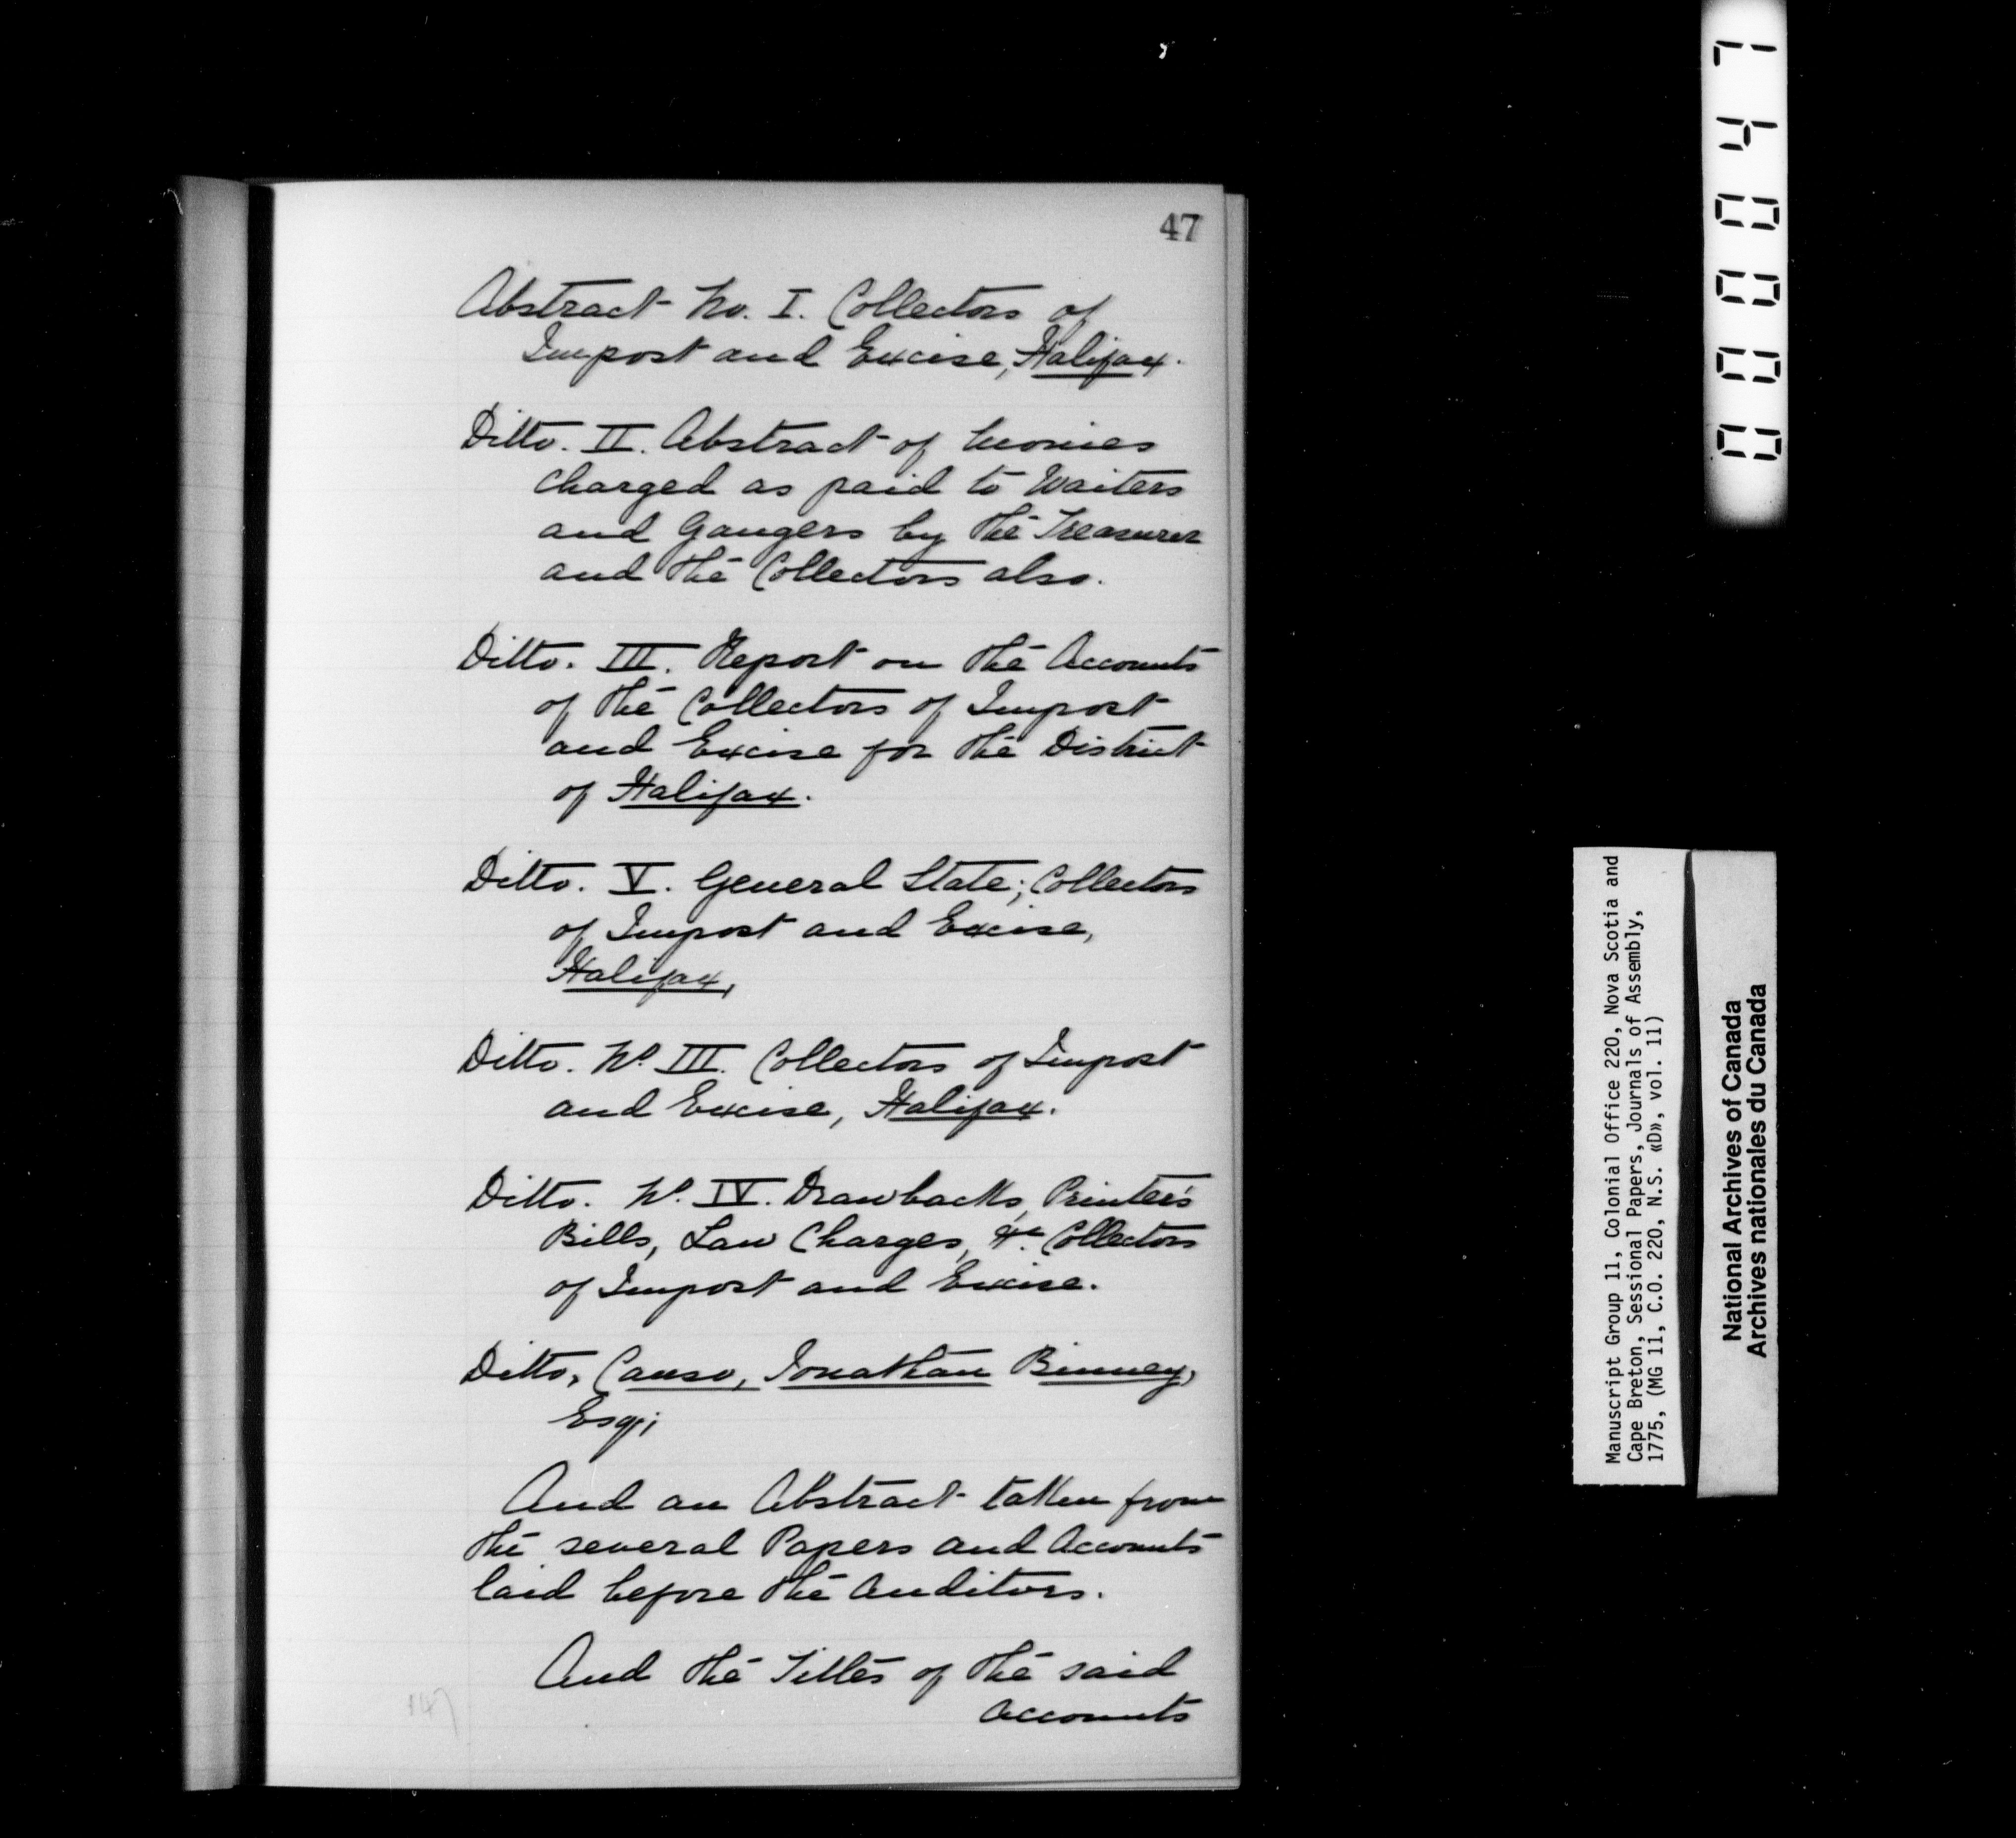 47
Abstract No. I. Collectors of
Impost and Excise, Halifax.
Ditto. II. Abstract of monies
charged as paid to Waiters
and Gaugers by the Treasurer
and the Collectors also.
Ditto. III. Report on the Accounts
of the Collectors of Impost
and Excise for the District
of Halifax.
Ditto. V. General State; Collectors
of Impost and Excise,
Halifax,
Ditto. No. III. Collectors of Impost
and Excise, Halifax.
Ditto. No. IV. Drawbacks, Printer's
Bills, Law Charges, &c. Collectors
of Impost and Excise.
Ditto, Canso, Jonathan Binney,
Esq;
And an Abstract taken from
the several Papers and Accounts
laid before the Auditors.
And the Titles of the said
Accounts
147
000047
Manuscript Group 11, Colonial Office 220, Nova Scotia and
Cape Breton, Sessional Papers, Journals of Assembly,
1775, (MG 11, C.O. 220, N.S. «D», vol. 11)
National Archives of Canada
Archives nationales du Canada